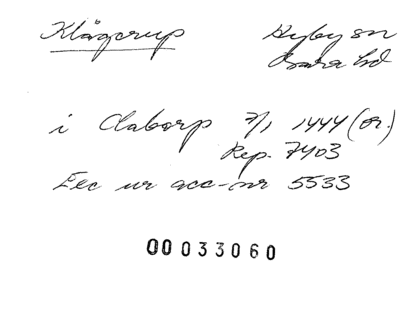 Klågerup Hyby sn
Bara hd
i Claborp 7/1 1444 (or.)
Rep. 7403
Exc ur acc-nr 5533
00033060